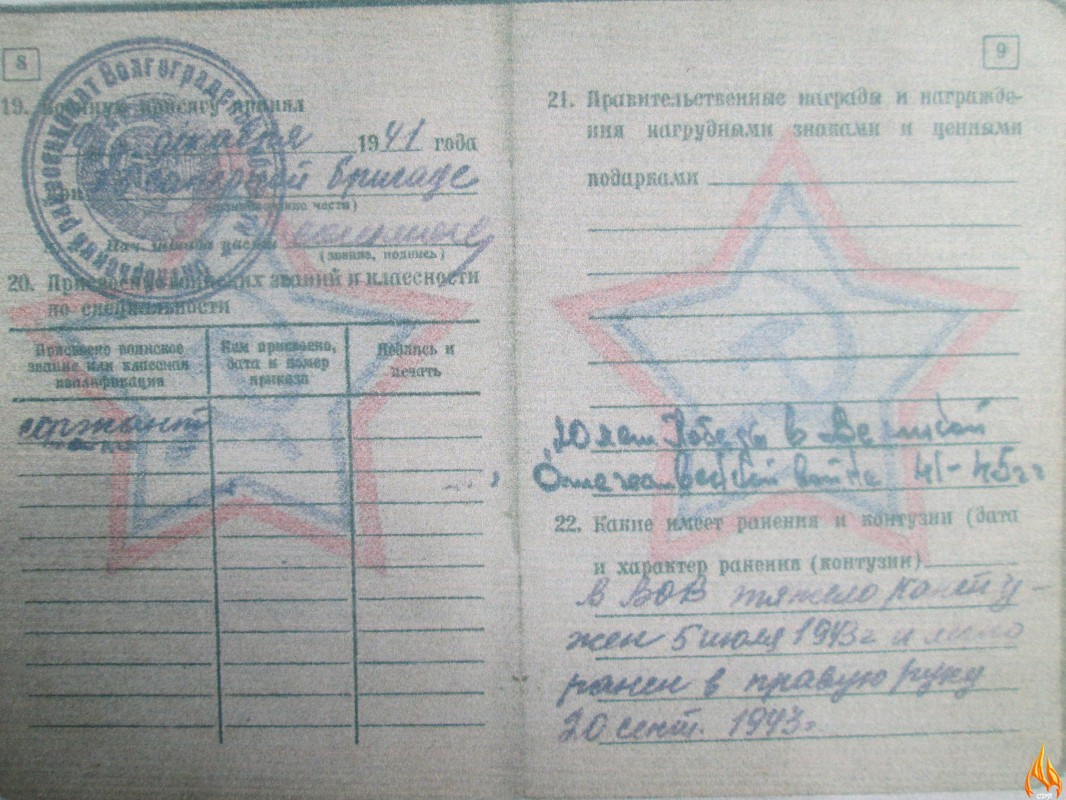 8
19. Военную присягу принял
декабря 1941 года
при саперной бригаде
(наименование части)
Нач. штаба части
(звание, подпись)
20. Присвоение воинских званий и классности
по специальности
Присвоено воинское
звание или классная
квалификация
Кем присвоено,
дата и номер
приказа
Подпись и
печать
сержант
райвоенкомат Волгоградской области
9
21. Правительственные награды и награжде-
ния нагрудными знаками и ценными
подарками
20 лет Победы в Великой
Отечественной войне 41-45гг
22. Какие имеет ранения и контузии (дата
и характер ранения (контузии)
в ВОВ тяжело конту-
жен 5 июля 1943г и легко
ранен в правую руку
20 сент. 1943г